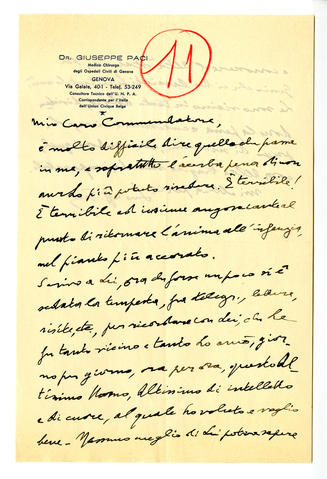 11
DR. GIUSEPPE PACI
Medico Chirurgo
degli Ospedali Civili di Genova
GENOVA
Via Galata, 40/1 - Telef. 53-249
Consultore Tecnico dell'U. N. P. A.
Corrispondente per l'Italia
dell'Union Civique Belge
Mio Caro Commendatore,
è molto difficile dire quello che passa
in me, e sopratutto l'acerba pena di non
averlo più potuto rivedere. È terribile!
È terribile ed insieme angosciante al
punto di ritornare l'anima all'infanzia,
nel pianto più accorato.
Scrivo a Lei, ora che forse un poco si è
sedata la tempesta, fra telegr., lettere,
visite, per ricordare con Lei, che ha
fra tanto vicino e tanto ho amato, gior
no per giorno, ora per ora, questo Al
tissimo Uomo, Altissimo di intelletto
e di cuore, al quale ho voluto e voglio
bene - Nessuno meglio di Lei poteva sapere